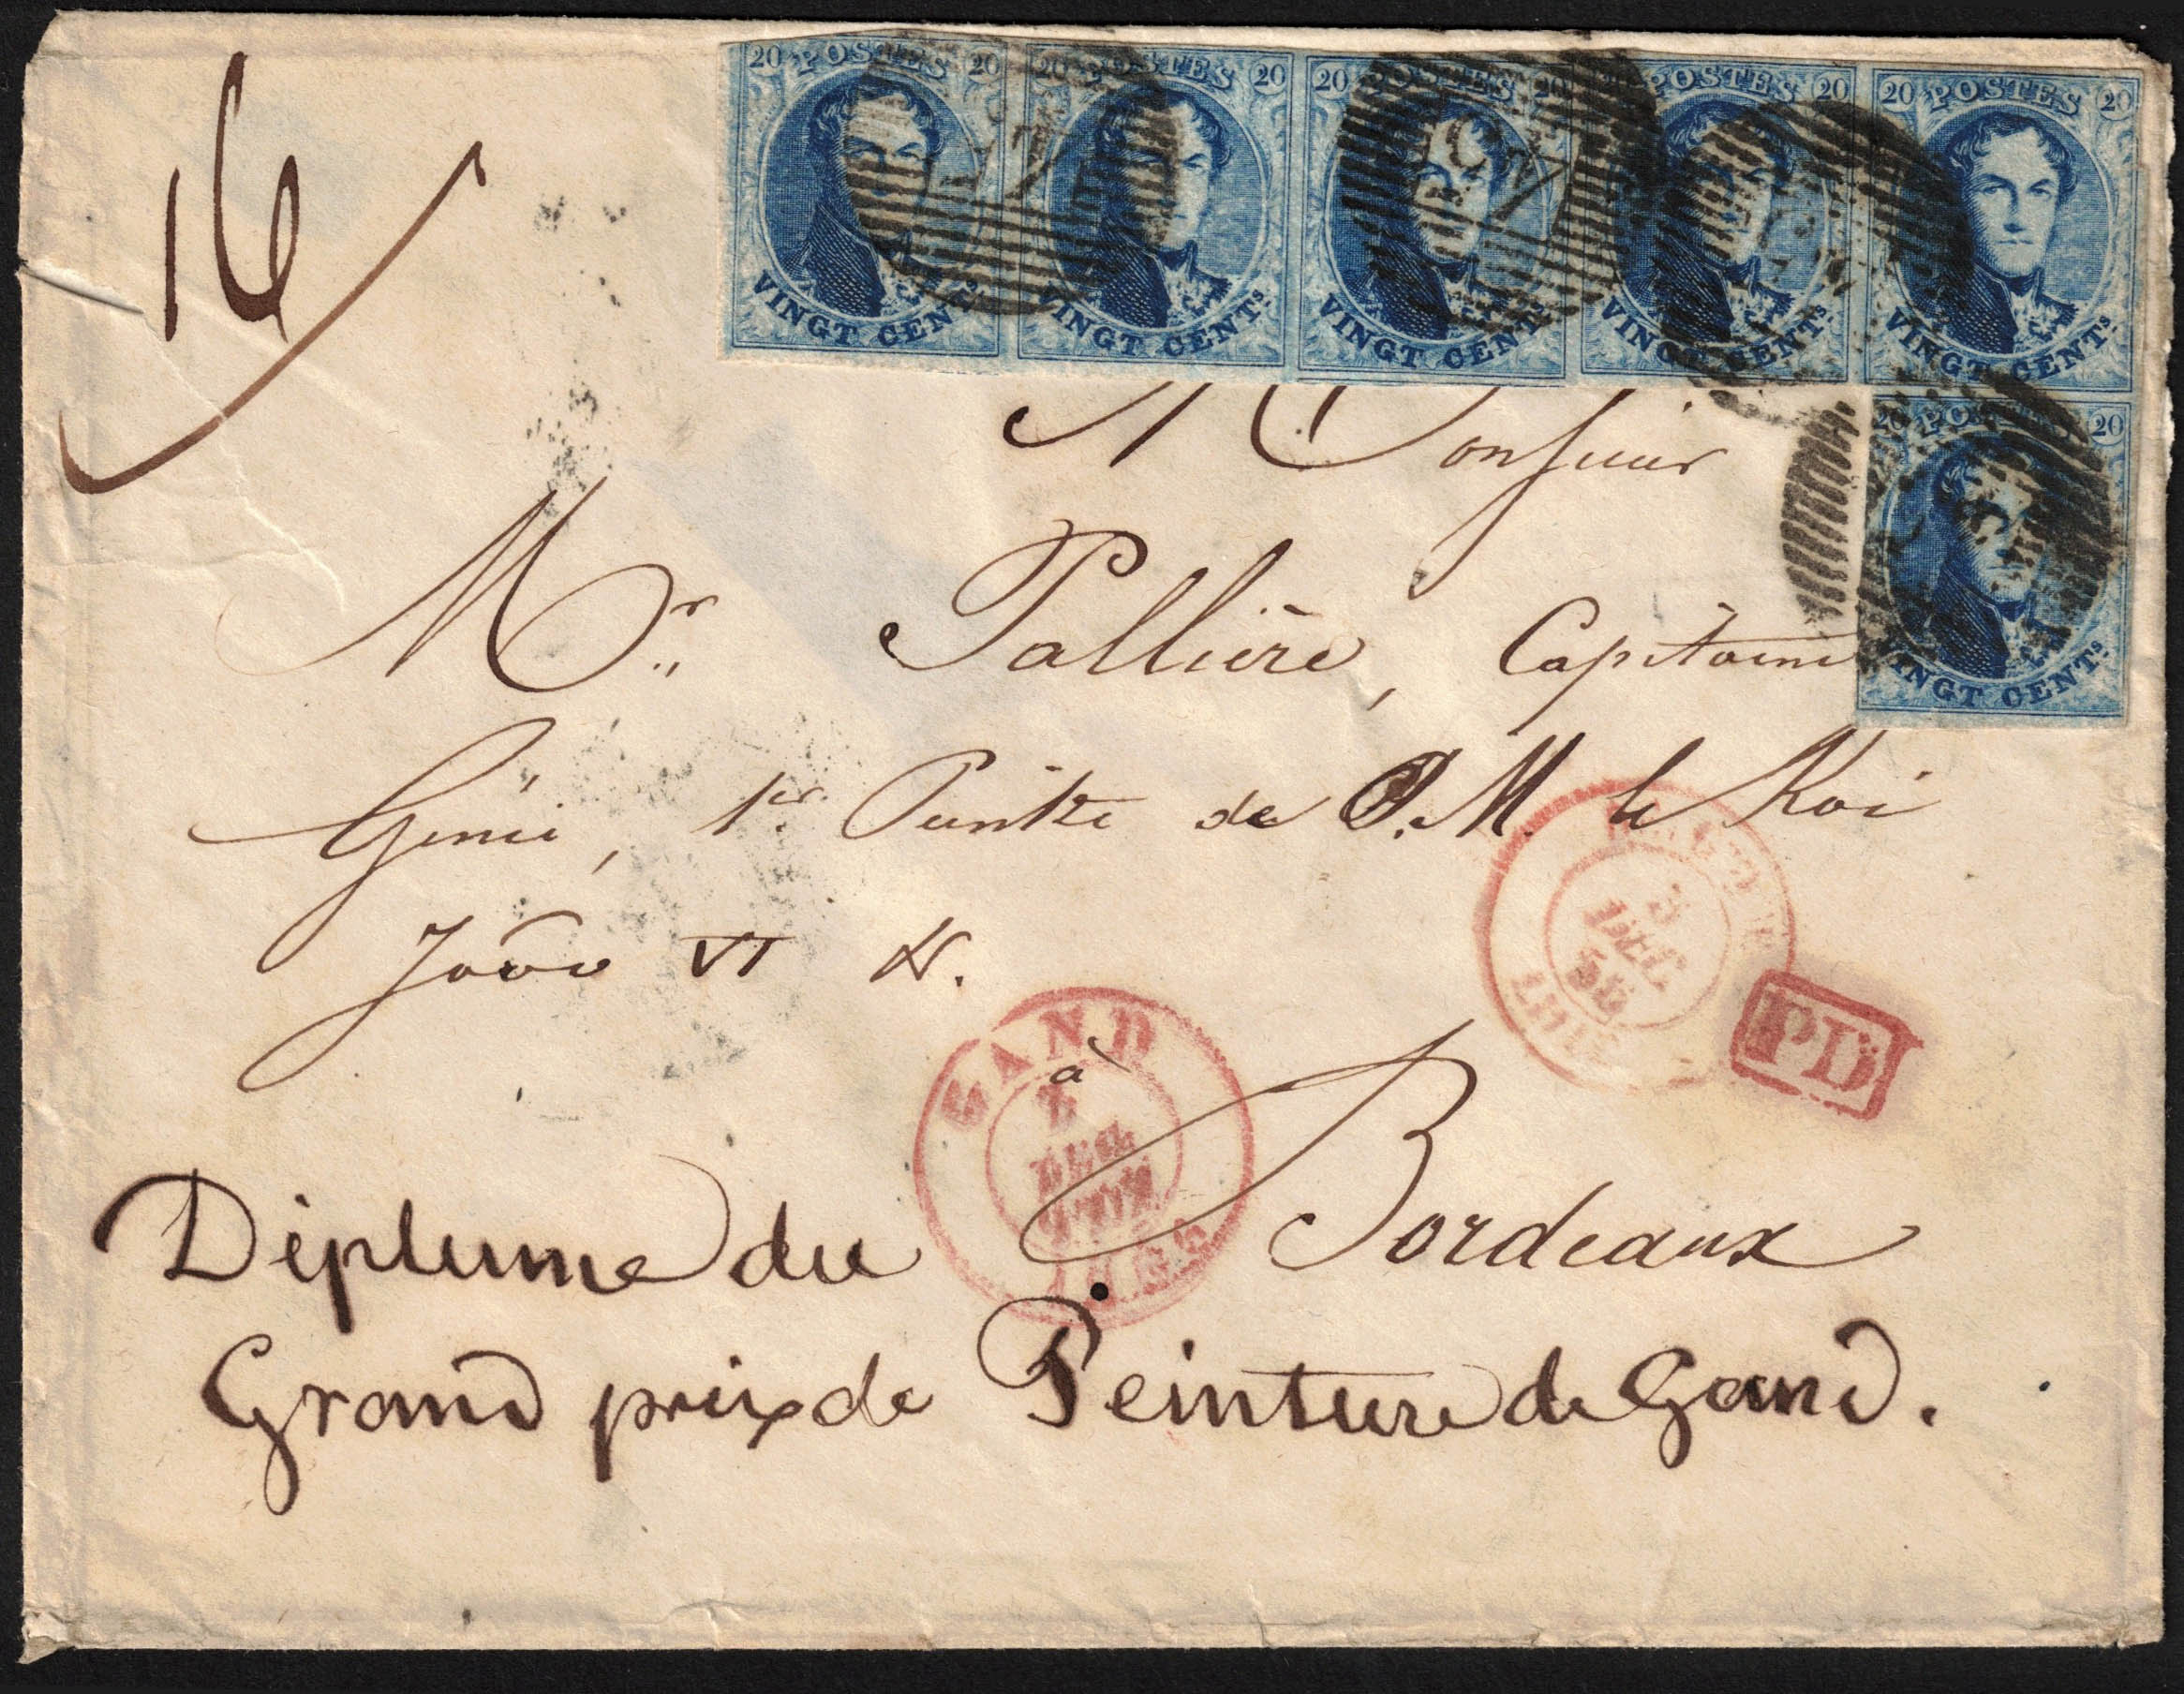 16
20 POSTES 20
VINGT CENTS.
20 POSTES 20
VINGT CENTS.
20 POSTES 20
VINGT CENTS.
20 POSTES 20
VINGT CENTS.
20 POSTES 20
VINGT CENTS.
20 POSTES 20
VINGT CENTS.
Monsieur
Mr. Pallière, Capitaine
Génie, 1er Peintre de S.M. le Roi
João VI
à
Bordeaux
GAND
DEC.
PD
DEC.
LILLE
Diplume du
Grand prix de Peinture de Gand.